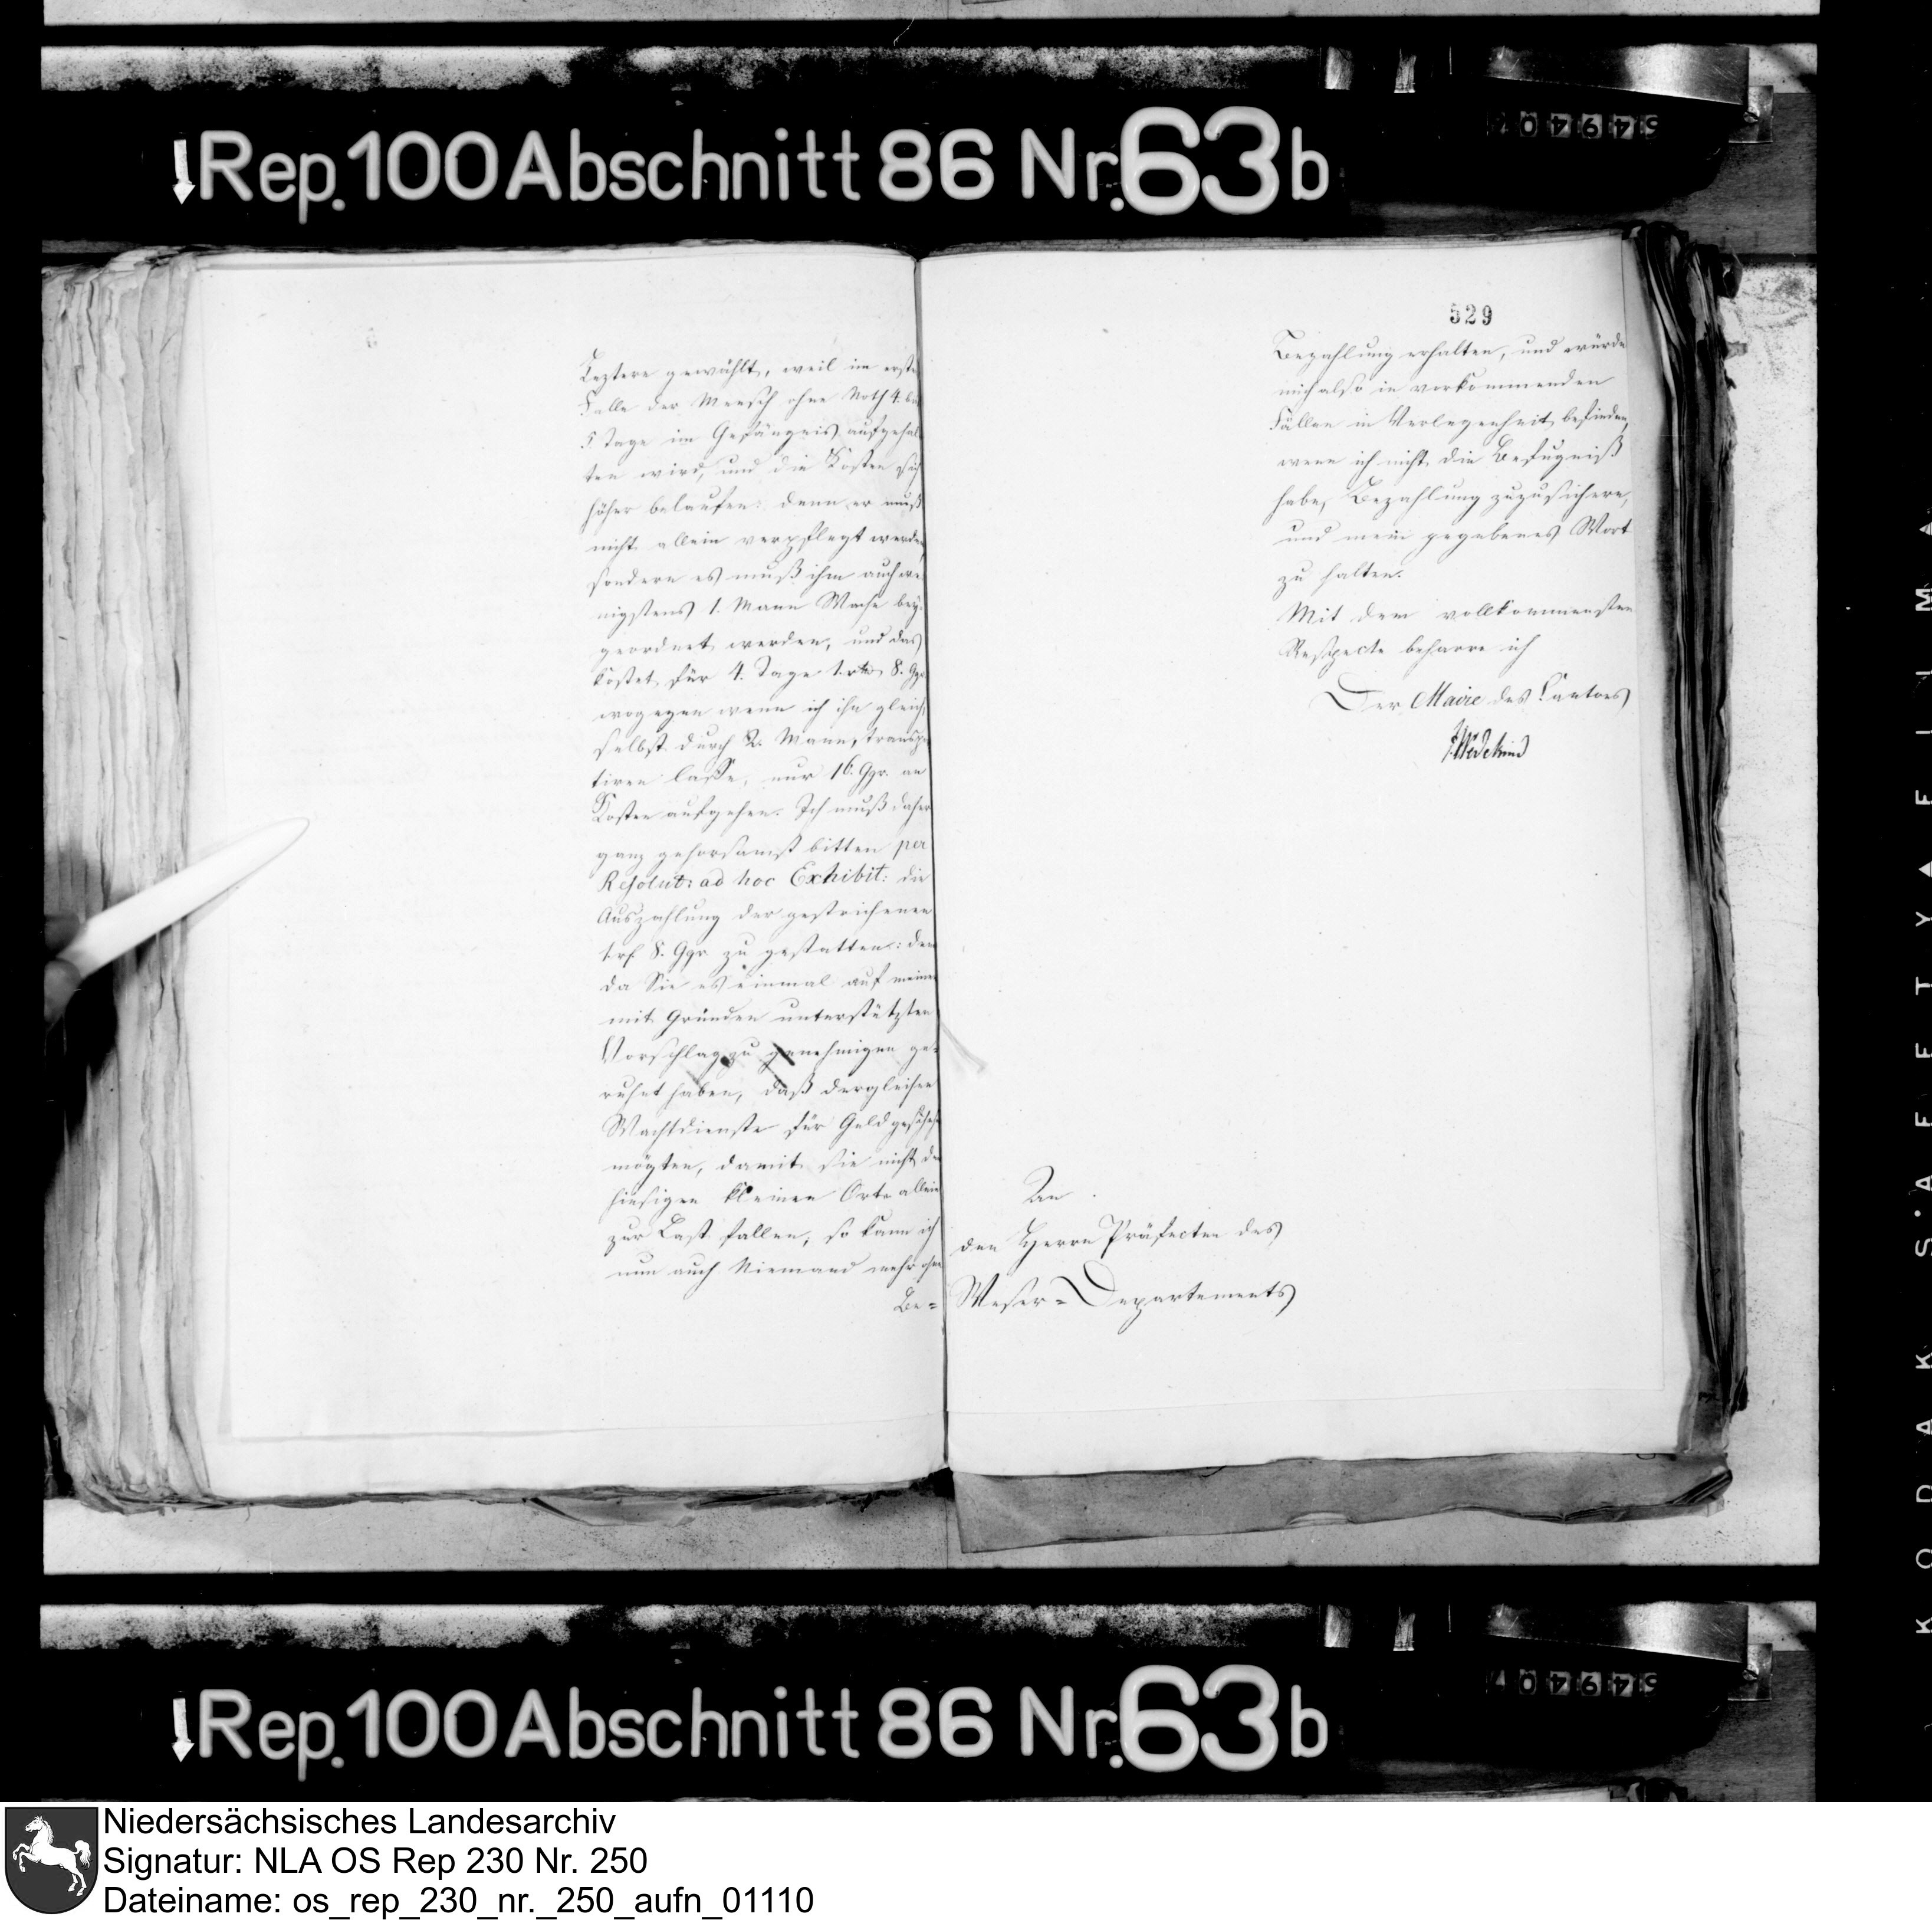 Rep. 100 Abschnitt 86 Nr. 63b
Leztere gewählt, weil im erste
Falle der Mensch ohne Noth 4. bis
5 Tage im Gefängnis aufgehal
ten wird, und die Kosten sich
höher belaufen: denn er muß
nicht allein verpflegt werden,
sondern es muß ihm auch we
nigstens 1. Mann Wache bey-
geordnet werden, und das
kostet für 4. Tage 1. rtlr 8. Ggr.
wogegen wenn ich ihn gleich
selbst durch 2. Mann, transpor
tiren lasse, nur 16. Ggr. an
Kosten aufgehen. Ich muß daher
ganz gehorsamst bitten per
Resolut: ad hoc Exhibit: die
Auszahlung der gestrichenen
1 rf 8. Ggr. zu gestatten: den
da Sie es einmal auf meinen
mit Gründen unterstützten
Vorschlag zu genehmigen ge-
ruhet haben, daß dergleichen
Wachtdienste für Geld geschehe
mögten, damit sie nicht de
hiesigen kleinen Orte allein
zur Last fallen, so kann ich
nun auch Niemand mehr ohne
Be=
529
Bezahlung erhalten, und würde
mich also in vorkommenden
Fällen in Verlegenheit befinden,
wenn ich nicht die Befugniß
habe, Bezahlung zuzusichern,
und mein gegebenes Wort
zu halten.
Mit dem vollkommensten
Respecte beharre ich
Der Maire des Cantons
Wedekind
An
den Herrn Präfecten des
Weser=Departements
Rep. 100 Abschnitt 86 Nr. 63b
KODAK S.A.F.E.T.Y FILM
Niedersächsisches Landesarchiv
Signatur: NLA OS Rep 230 Nr. 250
Dateiname: os_rep_230_nr._250_aufn_01110